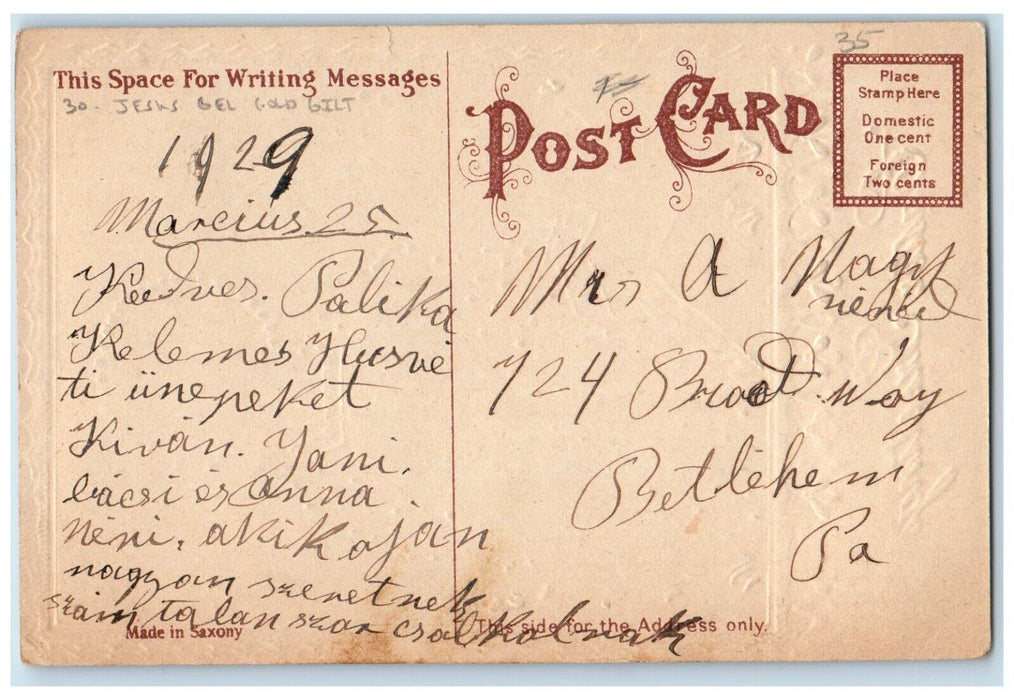 This Space For Writing Messages
30- JESUS GEL GOLD GILT
1929
Marcius 25.
Kedves. Palika
Kelemes Husvé
ti ünepeket
Kiván. Jani.
bácsi és Anna.
néni. akik
nagyon szeretnek
szám talan szor csolkolnak
Made in Saxony
POST CARD
35
Place
Stamp Here
Domestic
One cent
Foreign
Two cents
Mrs A Nagy
724 Broad Way
Betlehem
Pa
This side for the Address only.